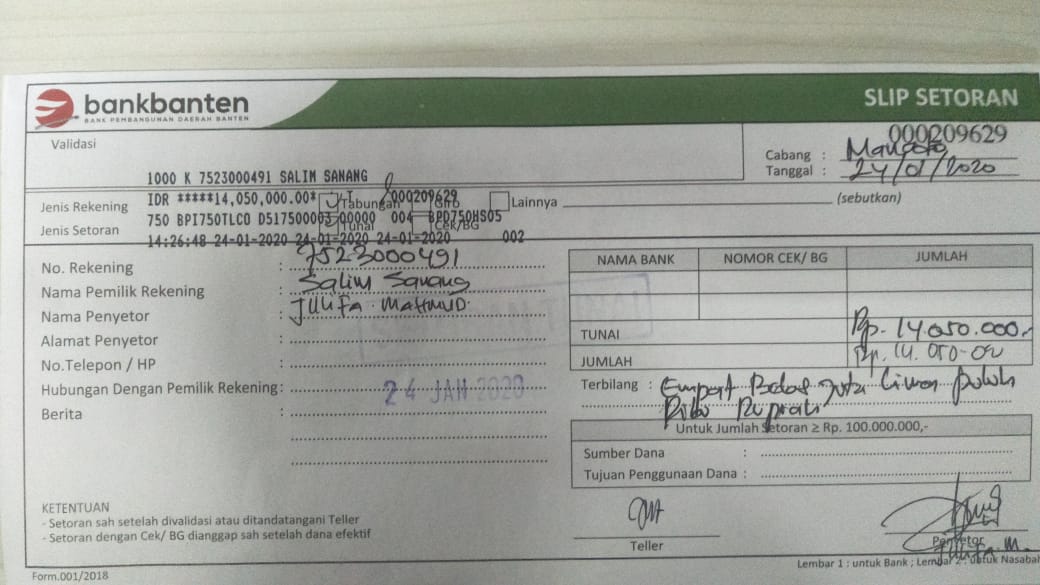 bankbanten
BANK PEMBANGUNAN DAERAH BANTEN
SLIP SETORAN
Validasi
000209629
Cabang :
Tanggal : 24/01/2020
1000 K 7523000491 SALIM SANANG
IDR *****14,050,000.00* 000209629
Jenis Rekening Tabungan Giro Lainnya (sebutkan)
750 BPI750TLCO D517500003 00000 004 BPD750HS05
Jenis Setoran Tunai Cek/BG
14:26:48 24-01-2020 24-01-2020 24-01-2020 002
No. Rekening : 7523000491
Nama Pemilik Rekening : Salim Sanang
Nama Penyetor : Julifa Mahmud
Alamat Penyetor :
No.Telepon / HP :
Hubungan Dengan Pemilik Rekening :
24 JAN 2020
Berita :
NAMA BANK NOMOR CEK/ BG JUMLAH
TUNAI Rp. 14.050.000,-
JUMLAH Rp. 14.050.00
Terbilang : Empat Belas juta lima puluh
Ribu Rupiah
Untuk Jumlah Setoran ≥ Rp. 100.000.000,-
Sumber Dana :
Tujuan Penggunaan Dana :
KETENTUAN
- Setoran sah setelah divalidasi atau ditandatangani Teller
- Setoran dengan Cek/ BG dianggap sah setelah dana efektif
Teller
Penyetor
Julifa. M.
Lembar 1 : untuk Bank ; Lembar 2 : untuk Nasabah
Form.001/2018